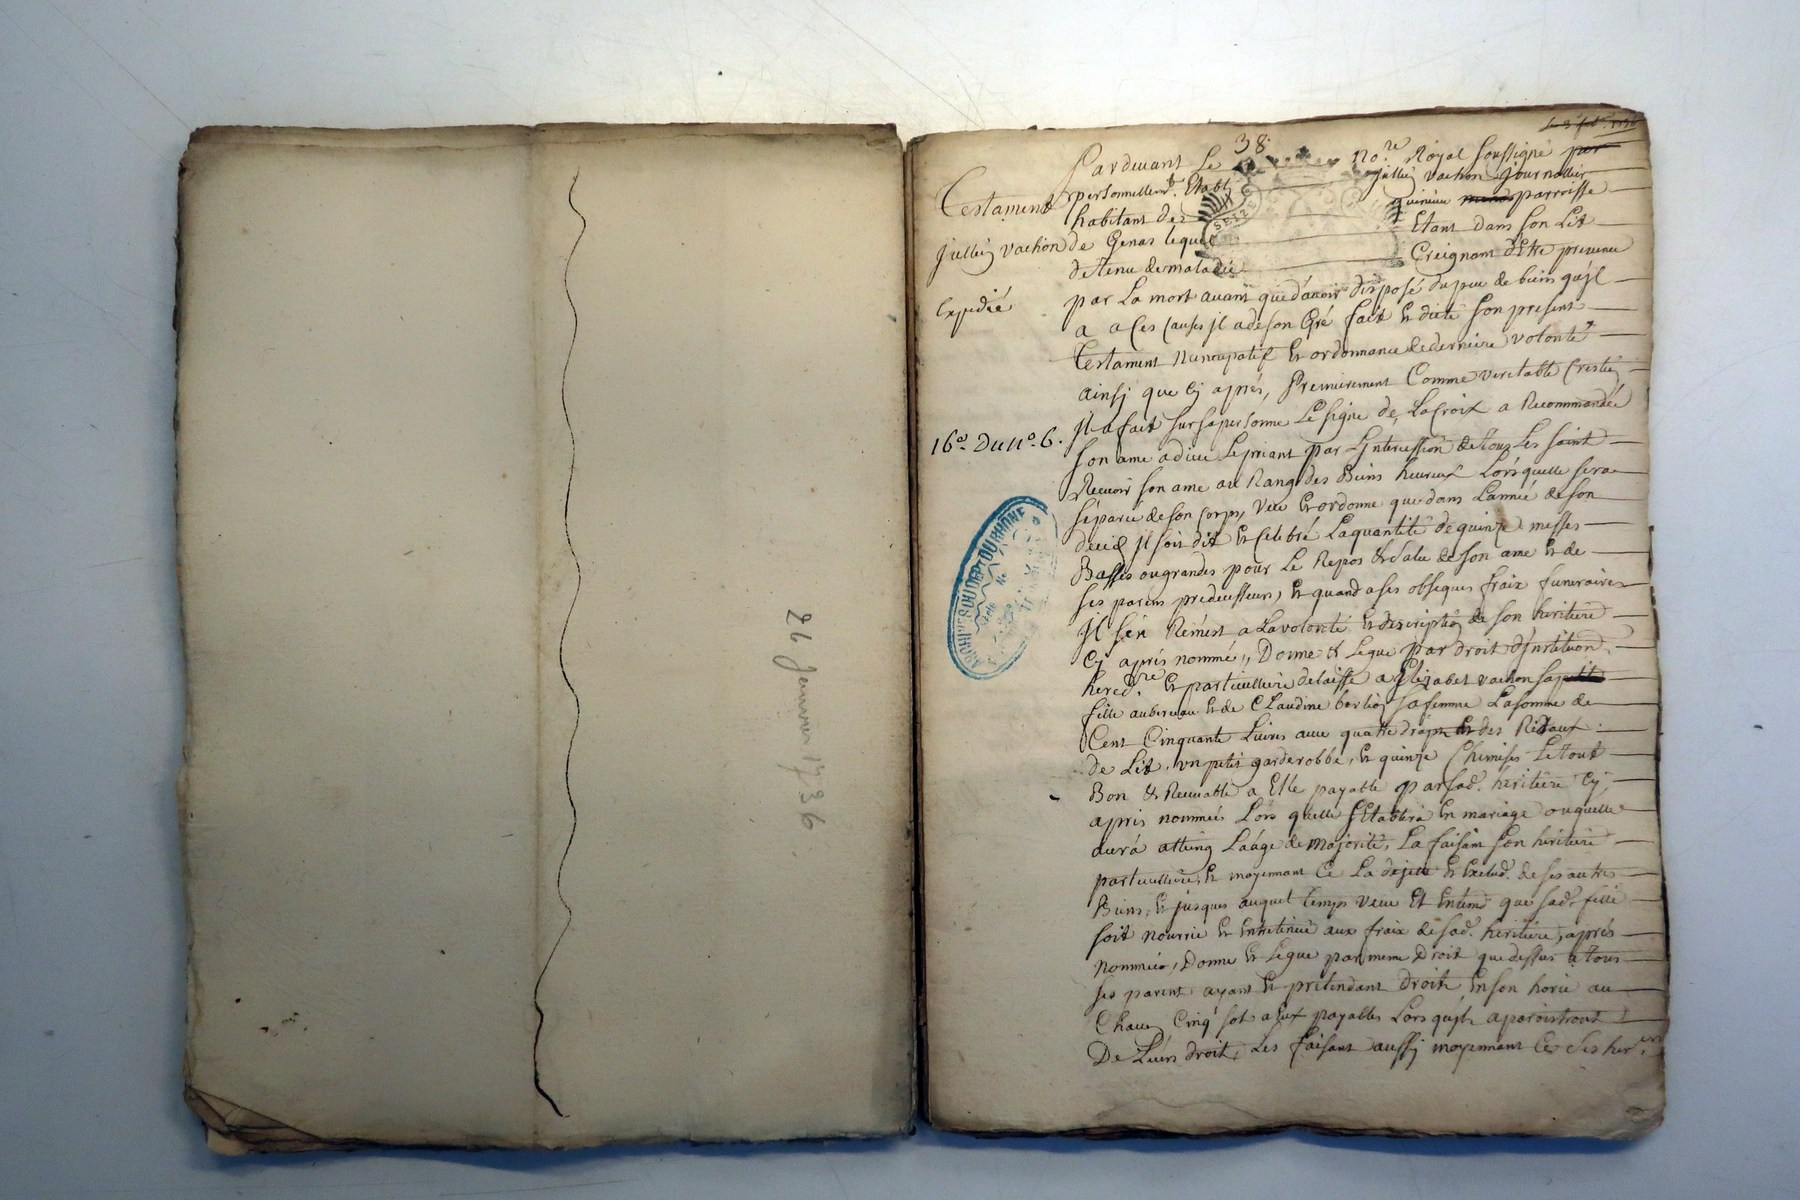 26 Janvier 1736
38
Pardevant Le no.re Royal Soussigné par
personnellem.t Etably Jullien vachon Journallier
habitant de quinieu parroisse
de Genas lequel Etant dans son Lit
detenu de maladie Creignant d'Etre prevenu
par La mort avant que d'avoir disposé du peu de biens qu'jl
a a Ces Causes jl a de son Gré fait Et dicté son present
Testament nuncupatif Et ordonnance de derniere volonté
ainsj que Cy aprés, Premierement Comme veritable Crestien
jl a fait sur sa personne Le signe de La Croix a Recommandée
son ame a dieu Le priant par L'jntercession de tous Les saint
Recevoir son ame au Rang des Biens heureux Lors quelle sera
séparée de son Corps, Veu Et ordonne que dans L'année de son
decés jl soit dit Et Celebré La quantité de quinze messes
Basses ou grandes pour Le Repos Et salu de son ame Et de
ses parens predecesseurs, Et quand a ses obseques fraix funeraires
jl s'en Remest a La volonté Et discription de son heritiere
Cy aprés nommée, Donne Et Legue par droit d'jnstitution
hered.re Et particulliere delaisse a Elizabet vachon sa petite
fille Et de Claudine berlioz sa femme La somme de
Cent Cinquante Livres avec quatre draps Et des Rideaux
de Lit, un petit garderobbe, Et quinze Chemises Le tout
Bon Et Recevable a Elle payable par sad. heritiere Cy
aprés nommée Lors quelle s'Etablira En mariage ou quelle
aura atteing L'aáge de majorité, La faisant son heritiere
particulliere, Et moyennant Ce La dejette Et Exclud. de ses autres
Biens, Et jusques auquel temps veut Et Entend que sad. fille
soit nourrie Et Entretenue aux fraix de sad. heritiere, aprés
nommée, Donne Et Legue par meme Droit que dessus a tous
ses parent ayant Et pretendant droit En son horie au
Chacun Cinq sol a Eux payables Lors qu'jls aparoistront
De Leurs droit, Les faisant aussy moyennant Ce ses her.ers
Testament
Jullien vachon
Expedié
16e. Du no. 6.
SEIZE
ARCHIVES DU DEPT DU RHONE